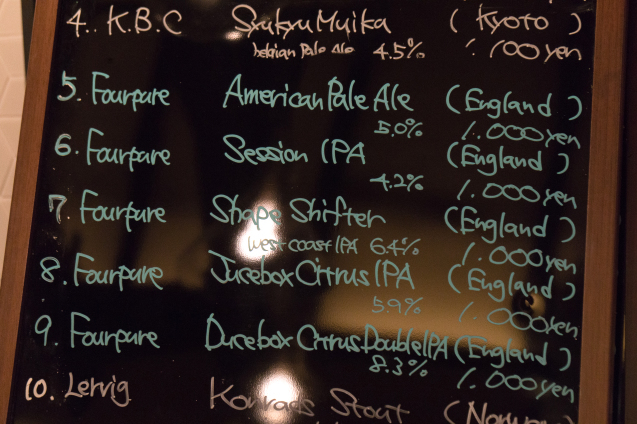 4. K.B.C Syukyu Muika (Kyoto)
belgian Pale Ale 4.5% 1.100yen
5. Fourpure American Pale Ale (England)
5.0% 1.000yen
6. Fourpure Session IPA (England)
4.2% 1.000yen
7. Fourpure Shape Shifter (England)
West coast IPA 6.4% 1.000yen
8. Fourpure Jucebox Citrus IPA (England)
5.9% 1.000yen
9. Fourpure Ducebox Citrus Double IPA (England)
8.3% 1.000yen
10. Lervig Konrads Stout (Norway